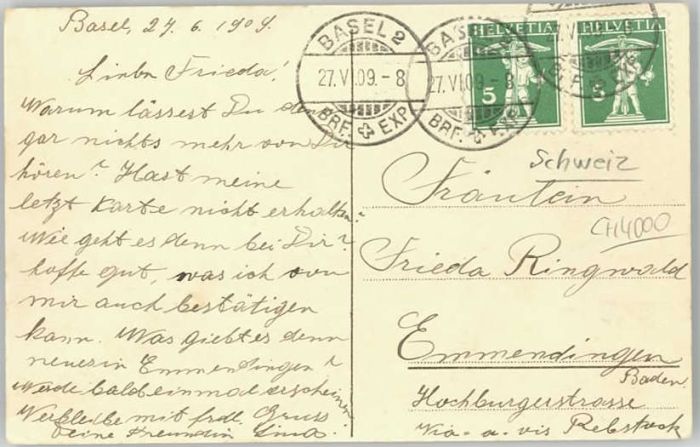 Basel, 27. 6. 1909.
Liebe Frieda!
Warum lässest Du denn
gar nichts mehr von Dir
hören? Hast meine
letzt Karte nicht erhalten?
Wie geht es denn bei Dir?
hoffe gut, was ich von
mir auch bestätigen
kann. Was giebt es denn
neues in Emmendingen?
Werde bald einmal erscheinen
Verbleibe mit frdl. Gruss
Deine Freundin Lina.
BASEL 2
27. VI. 09. - 8
BRF. EXP.
BASEL 2
27. VI. 09. - 8
BRF. EXP.
HELVETIA
5
HELVETIA
5
BRF. EXP.
Schweiz
CH4000
Fräulein
Frieda Ringwald
Emmendingen
Baden.
Hochburgerstrasse
Via-a-vis Rebstock